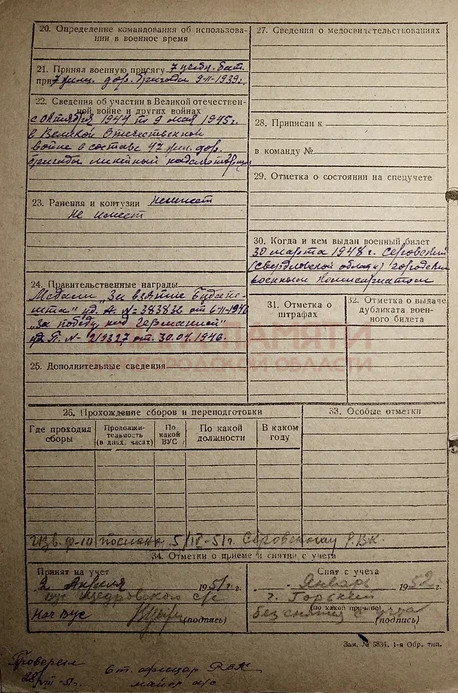 20. Определение командования об использова-
нии в военное время
21. Принял военную присягу 7 учебн. бат.
при 7 дор. бригады 9-II-1939г.
22. Сведения об участии в Великой отечествен-
ной войне и других войнах
с октября 1944 по 9 мая 1945г.
в Великой Отечественной
войне в составе 47 дор.
бригады линейный надсмотрщик
23. Ранения и контузии не имеет
Не имеет
24. Правительственные награды
Медали "За взятие Будапе-
шта" уд. А № 383836 от
"За победу над Германией"
№ 219327 от 30.01.1946.
25. Дополнительные сведения
27. Сведения о медосвидетельствованиях
28. Приписан к
в команду №
29. Отметка о состоянии на спецучете
30. Когда и кем выдан военный билет
30 марта 1948 г. Серовский
(Свердловской области) городской
военным комиссариатом
31. Отметка о
штрафах
32. Отметка о выдаче
дубликата воен-
ного билета
ПАМЯТИ
ОБЛАСТИ
26. Прохождение сборов и переподготовки
Где проходил
сборы
Продолжи-
тельность
(в днях, часах)
По
какой
ВУС
По какой
должности
В каком
году
33. Особые отметки
послано 5/IV-51г. Серовскому РВК.
34. Отметки о приеме и снятии с учета
Принят на учет
2 Апреля 1951 г.
ВУС с/с
Нач ВУС (подпись)
Снят с учета
Январь 1952 г.
г. Горький
(по какой причине)
без снятия с учета
(подпись)
Зак. № 5834. 1-я Обр. тип.
Проверен
Ст. офицер РВК
майор а/с